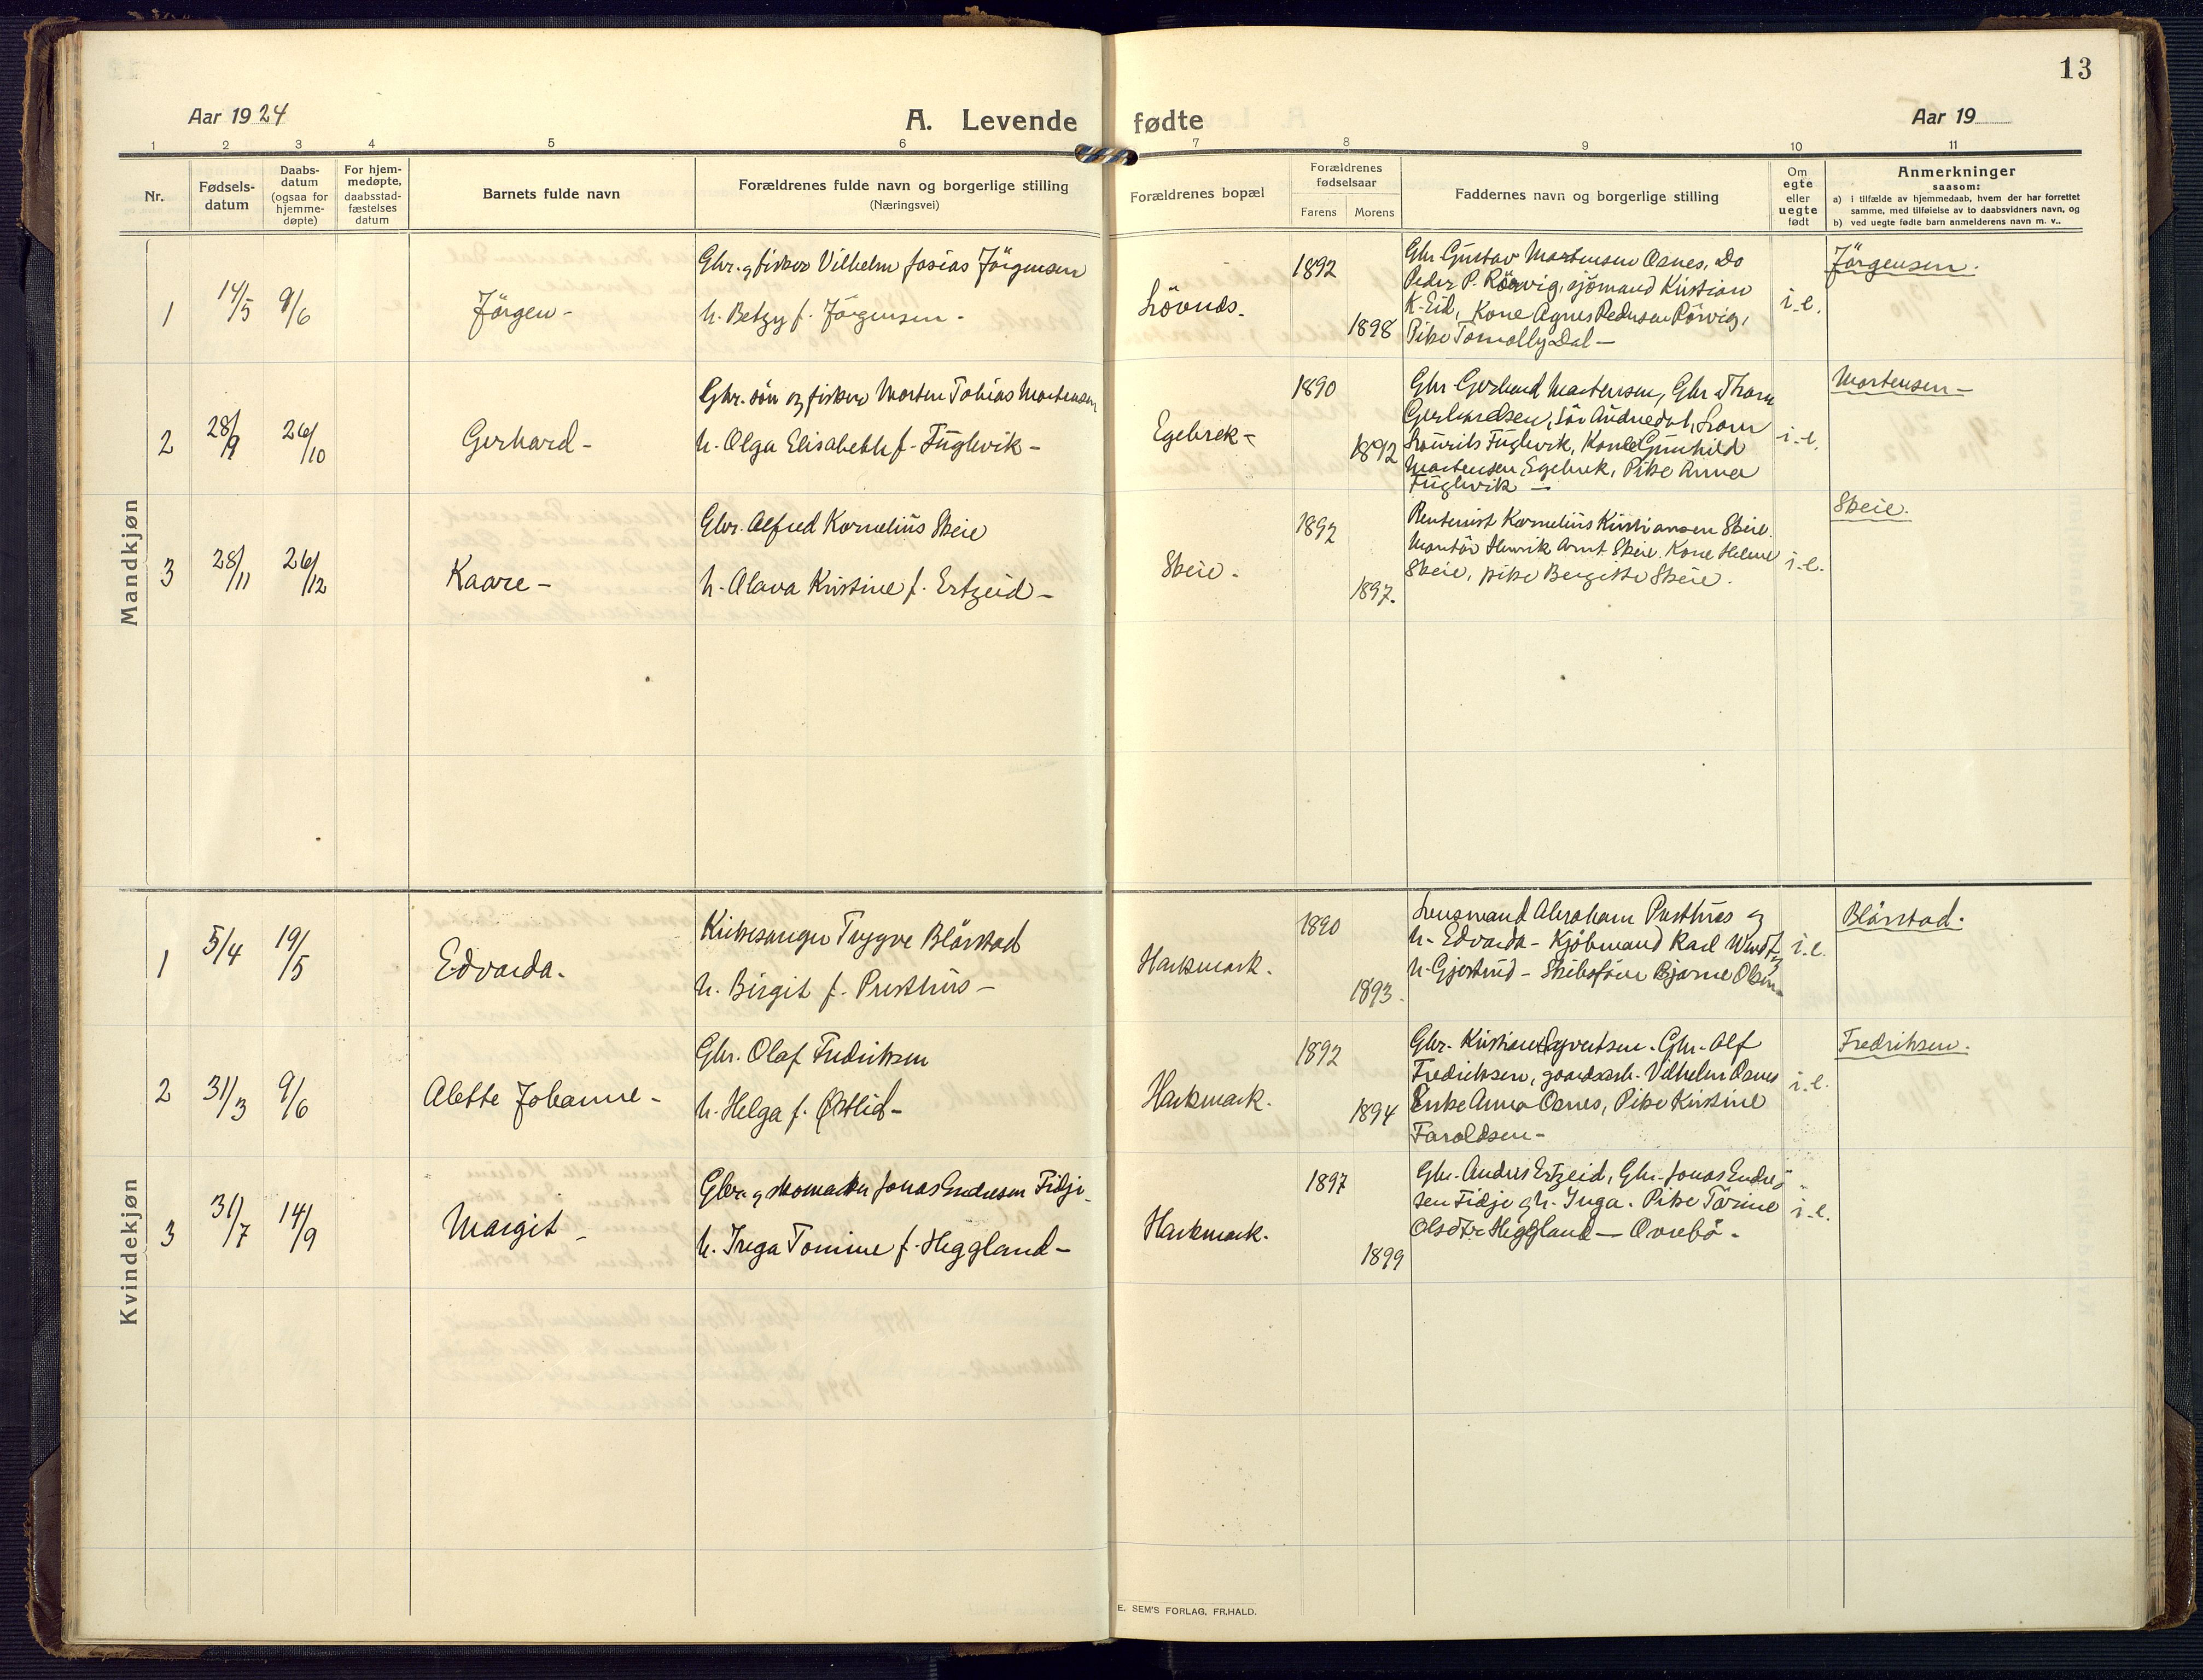 13
Aar 1924
A. Levende fødte
Aar 19
1 2 3 4 5 6 7 8 9 10 11
Nr.
Fødsels-
datum
Daabs-
datum
(ogsaa for
hjemme-
døpte)
For hjem-
medøpte,
daabsstad-
fæstelses
datum
Barnets fulde navn
Forældrenes fulde navn og borgerlige stilling
(Næringsvei)
Forældrenes bopæl
Forældrenes
fødselsaar
Farens Morens
Faddernes navn og borgerlige stilling
Om
egte
eller
uegte
født
Anmerkninger
saasom:
a) i tilfælde av hjemmedaab, hvem der har forrettet
samme, med tilføielse av to daabsvidners navn, og
b) ved uegte fødte barn anmelderens navn m. v..
Mandkjøn
1 14/5 9/6 Jörgen -
Gbr. og fisker Vilhelm Josias Jörgensen
h. Betzy f. Jörgensen -
Lövnes.
1892
1898
Gbr Gustav Mortensen Osnes, Do
Peder P. Rörvig, sjömand Kristian
K. Eid, Kone Agnes Pedersen Rörvig,
Pike Tomolly Dal -
i. e.
Jörgensen.
2 28/9 26/10 Gerhard -
Gbr. sön og fisker Morten Tobias Mortensen
h. Olga Elisabeth f. Fuglevik -
Egebrek -
1890
1892
Gbr Gerhard Mortensen, Gbr Thom
Gerhardsen, Sör Audnedal,
Laurits Fuglevik, Kone Gunhild
Mortensen, Egebrek, Pike Anna
Fuglevik -
i. e.
Mortensen -
3 28/11 26/12 Kaare -
Gbr. Alfred Kornelius Skeie
h. Olava Kristine f. Ertzeid -
Skeie.
1892
1897.
Rentenist Kornelius Kristiansen Skeie.
Montör Henrik Arnt Skeie. Kone Helene
Skeie, pike Bergitte Skeie.
i. e.
Skeie.
Kvindekjøn
1 5/4 19/5 Edvarda.
Kirkesanger Trygve Blörstad
h. Birgit f. Presthus -
Harkmark.
1890
1893.
Lensmand Abraham Presthus og
h. Edvarda - Kjöbmand Karl Wendt og
h. Gjertrud - Skibsförer Bjarne Olsen
i. e.
Blörstad.
2 31/3 9/6 Alette Johanne -
Gbr. Olaf Fredriksen
h. Helga f. Östlid -
Harkmark.
1892
1894
Gbr. Kristian Syvertsen. Gbr. Alf
Fredriksen, gaardsarb. Vilhelm Osnes
Enke Anna Osnes, Pike Kristine
Taroldsen -
i. e.
Fredriksen.
3 31/7 14/9 Margit -
Gbr. og skomaker Jonas Endresen Fidje.
h. Inga Tomine f. Heggland -
Harkmark.
1897
1899
Gbr. Andres Ertzeid, Gbr. Jonas Endre-
sen Fidje og h. Inga. Pike Tomine
Olsdtr Heggland - Övrebö.
i. e.
E. SEM'S FORLAG, FR.HALD.